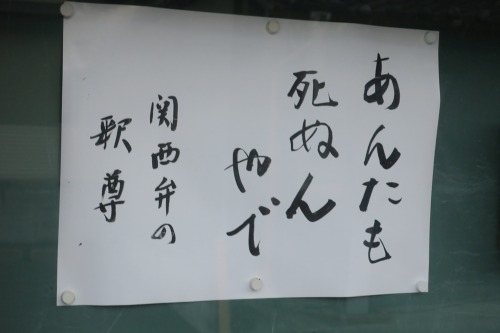 あんたも
死ぬん
やで
関西弁の
釈尊